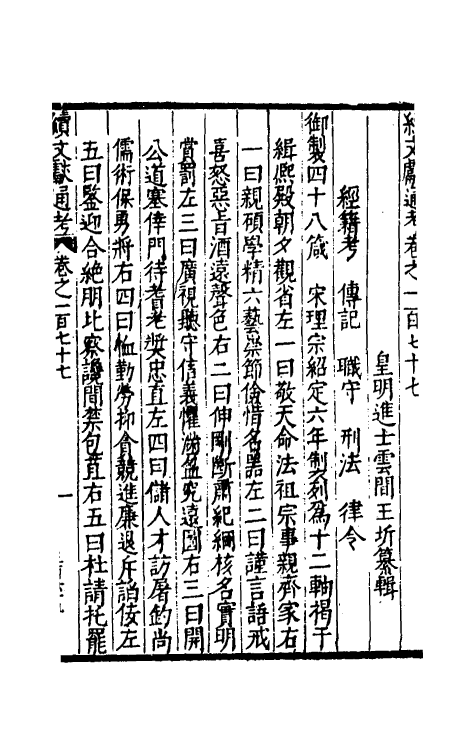 續文獻通考卷之一百七十七
皇明進士雲間王圻纂輯
經籍考 傳記 職守 刑法 律令
御製四十八箴 宋理宗紹定六年製列爲十二軸褐于
緝熙殿朝夕觀省左一曰敬天命法祖宗事親齊家右
一曰親碩學精六藝崇節儉惜名器左二曰謹言語戒
喜怒惡旨酒遠聲色右二曰伸剛斷肅紀綱核名實明
賞罰左三曰廣視聽守信義懼滿盈究遠圖右三曰開
公道塞倖門待耆老奬忠直左四曰儲人才訪屠釣尚
儒術保勇將右四曰恤勤勞抑貪競進廉退斥諂佞左
五曰鑒迎合絶朋比察讒間禁包苴右五曰杜請托罷
續文獻通考 卷之一百七十七
一